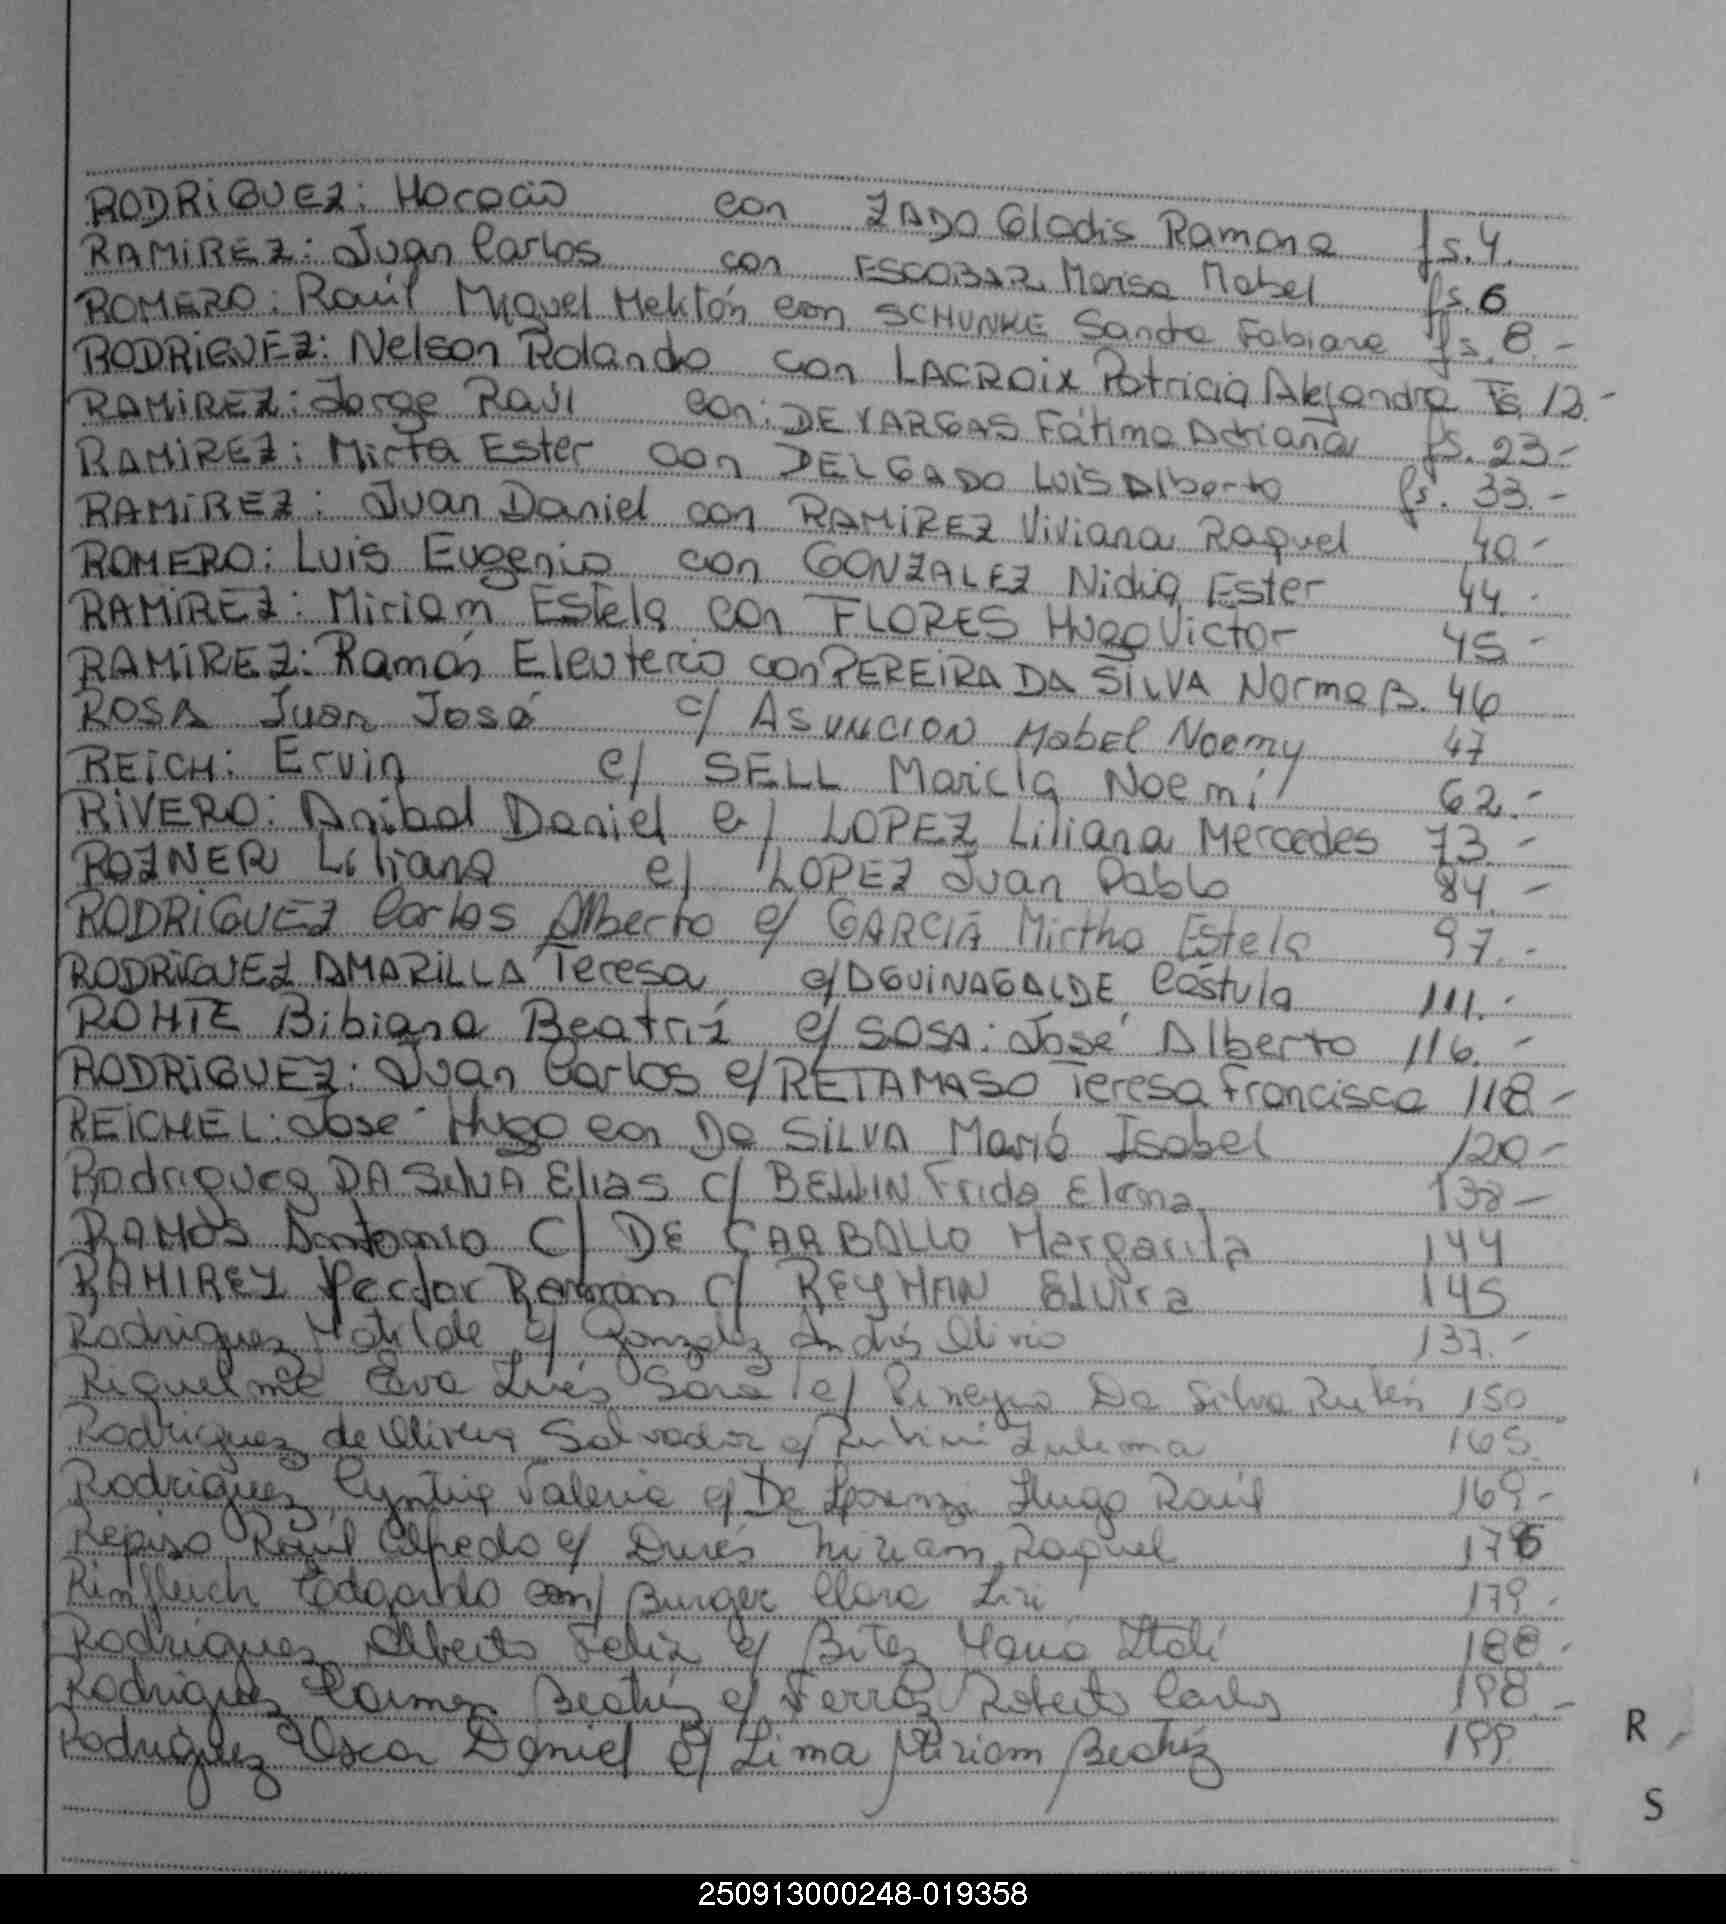 RODRIGUEZ: Horacio con ZADO Gladis Ramona fs. 4.
RAMIREZ: Juan Carlos con ESCOBAR Marisa Mabel fs. 6
ROMERO: Raúl Miguel Melitón con SCHUNKE Sandra Fabiana fs. 8.-
RODRIGUEZ: Nelson Rolando con LACROIX Patricia Alejandra Fs. 12.-
RAMIREZ: Jorge Raúl con: DE VARGAS Fátima Adriana fs. 23.-
RAMIREZ: Mirta Ester con DELGADO Luis Alberto fs. 33.-
RAMIREZ: Juan Daniel con RAMIREZ Viviana Raquel 40.-
ROMERO: Luis Eugenio con GONZALEZ Nidia Ester 44.-
RAMIREZ: Miriam Estela con FLORES Hugo Victor 45.-
RAMIREZ: Ramón Eleuterio con PEREIRA DA SILVA Norma B. 46
ROSA Juan José c/ ASUNCION Mabel Noemy 47
REICH: Ervin c/ SELL Maricla Noemí 62.-
RIVERO: Anibal Daniel c/ LOPEZ Liliana Mercedes 73.-
ROZNER Liliana c/ LOPEZ Juan Pablo 84.-
RODRIGUEZ Carlos Alberto c/ GARCIA Mirtha Estela 97.-
RODRIGUEZ AMARILLA Teresa c/ AGUINAGALDE Cástula 111.-
ROHTE Bibiana Beatríz c/ SOSA: José Alberto 116.-
RODRIGUEZ: Juan Carlos c/ RETAMASO Teresa Francisca 118.-
REICHEL: José Hugo con Da SILVA María Isabel 120.-
Rodriguez DA SilVA Elias c/ BELLIN Frida Elena 138-
RAMOS Antonio C/ DE CARBALLO Margarita 144
RAMIREZ Hector Ramon c/ REYMAN Elvira 145
Rodriguez Matilde c/ Gonzalez Andrés Olivio 137.-
Riquelme Eva Inés Sara c/ Pineyro Da Silva Rubén 150
Rodriguez de Olivera Salvador c/ Zulema 165.
Rodriguez Cyntia Valeria c/ De Lorenzi Hugo Raúl 169.-
Repiso Raúl Alfredo c/ Miriam Raquel 176
Edgardo con/ Burger Clara 179.-
Rodriguez Alberto Felix c/ Bitez María Itatí 188.-
Rodriguez Carmen Beatriz c/ Ferraz Roberto Carlos 198.-
Rodriguez Oscar Daniel c/ Lima Miriam Beatriz 199.
R
S
250913000248-019358